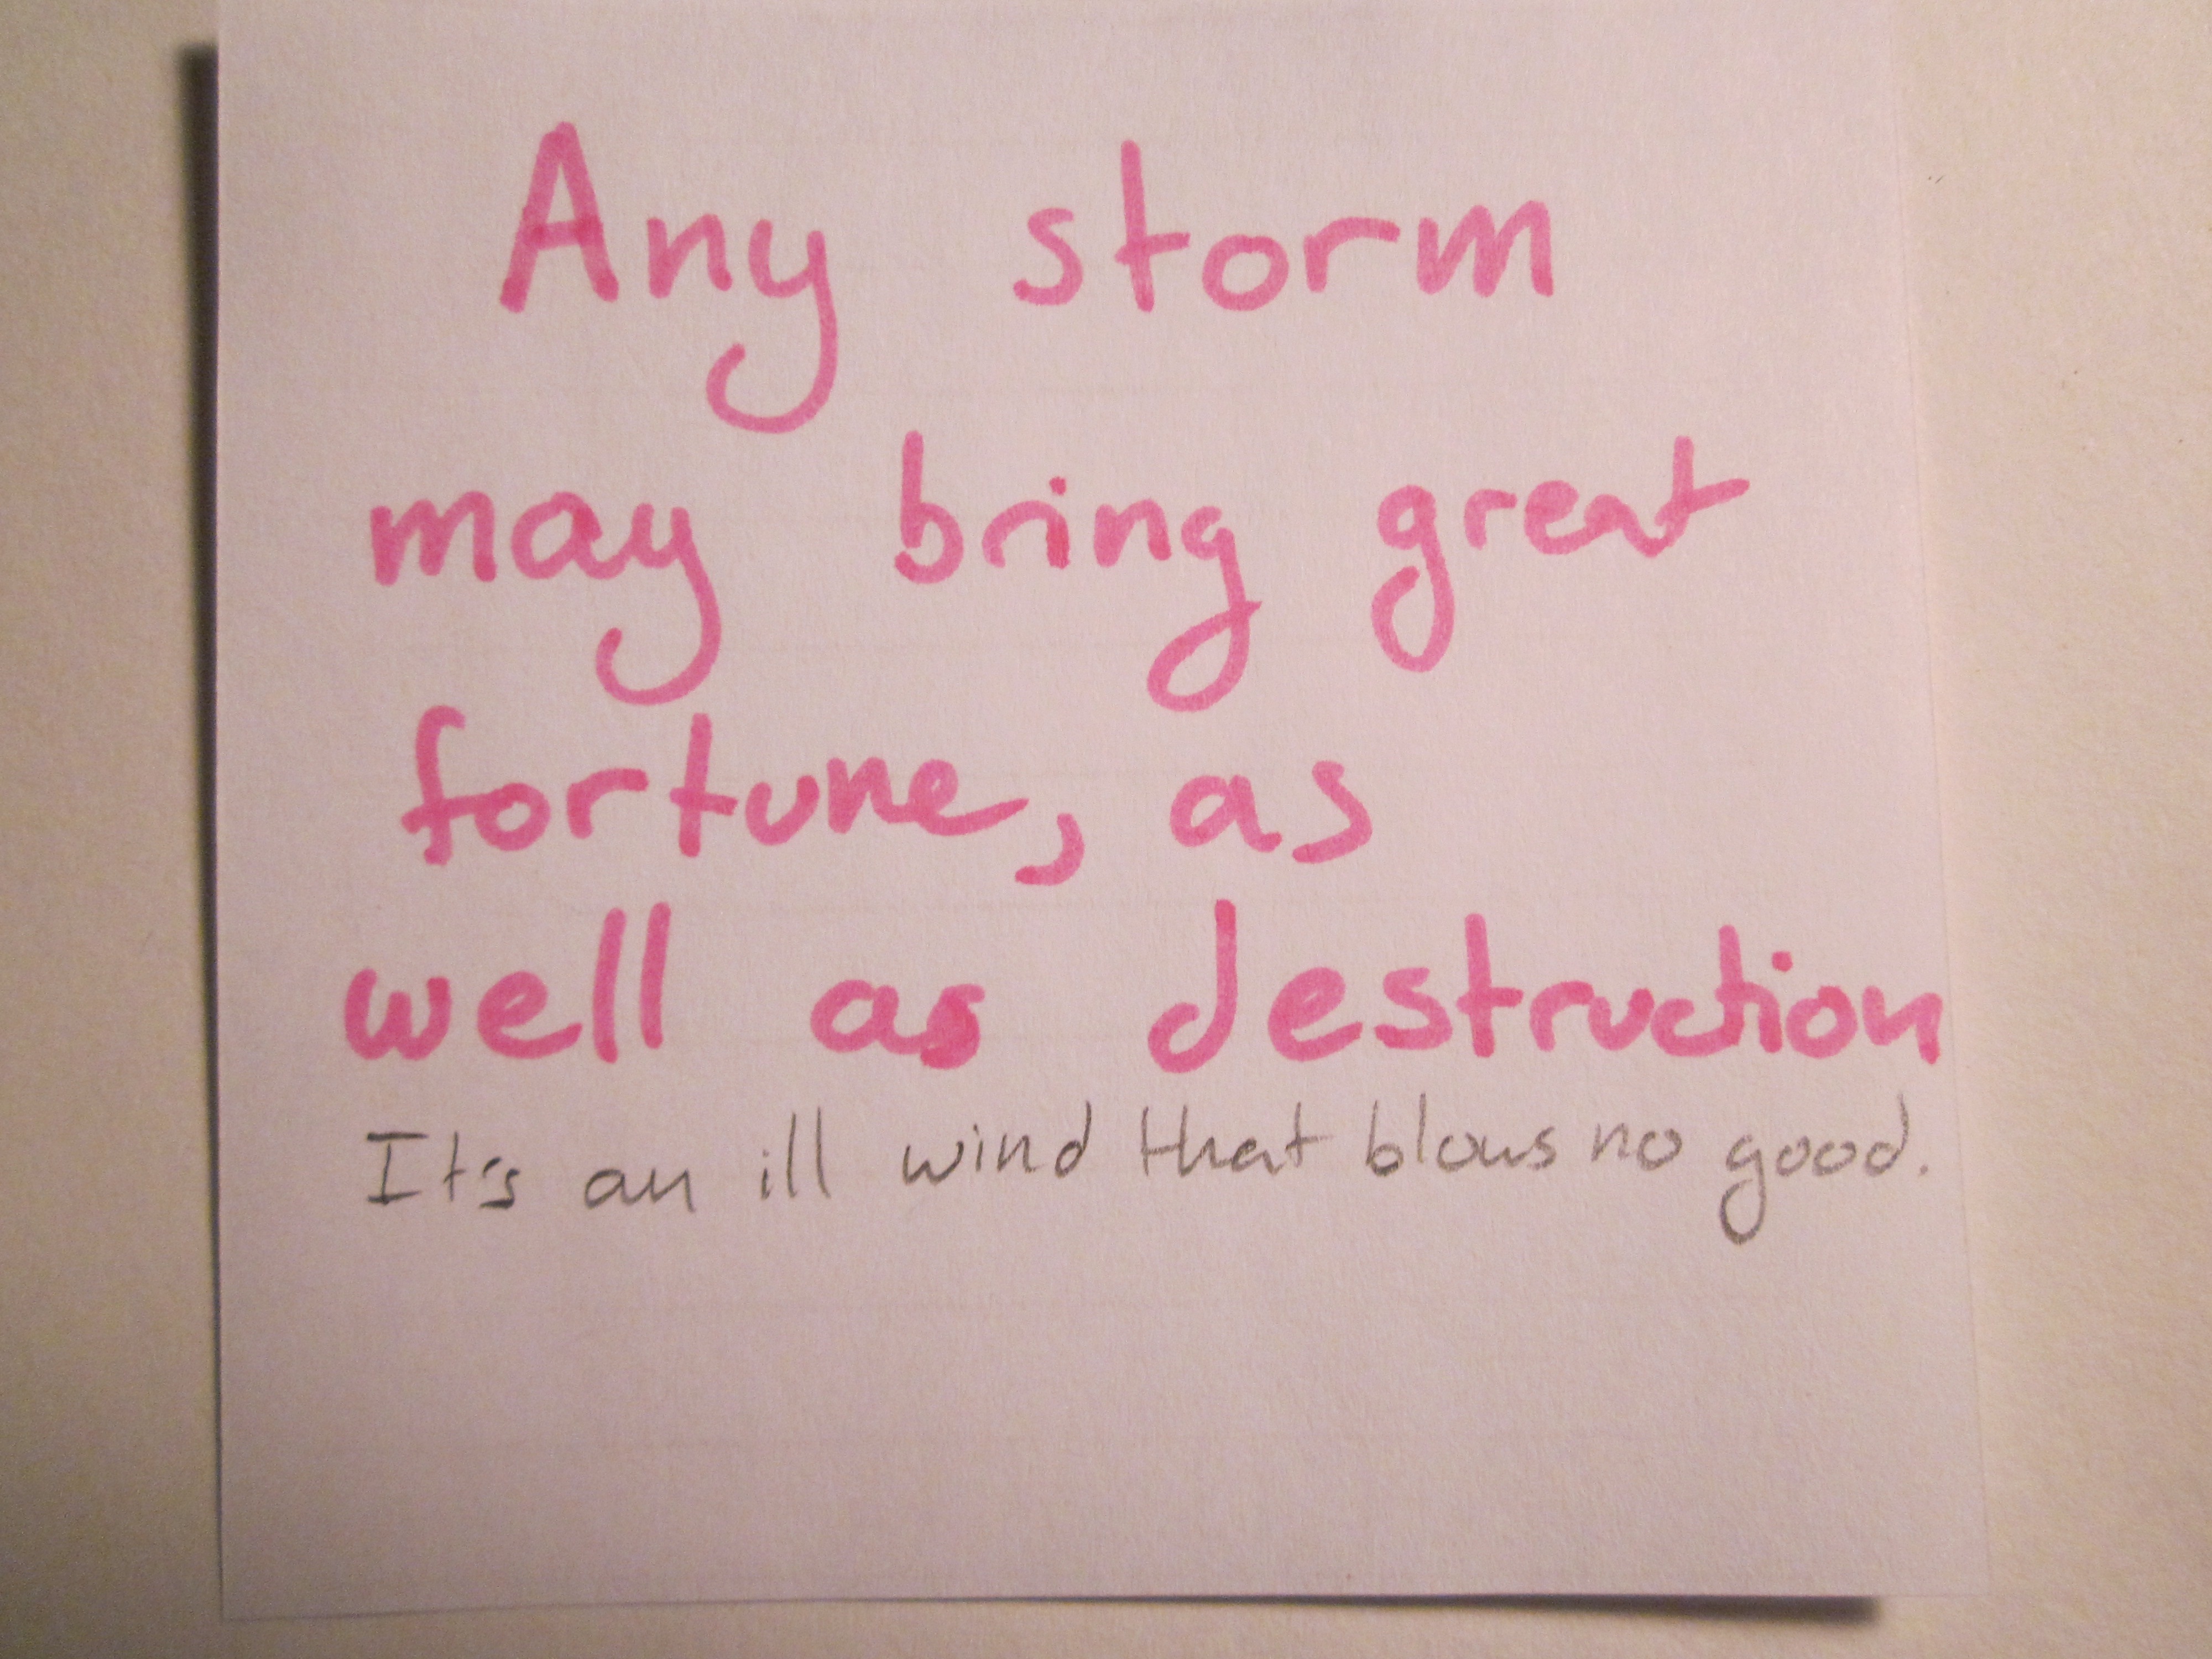 Any storm
may bring great
fortune, as
well as destruction
It's an ill wind that blows no good.